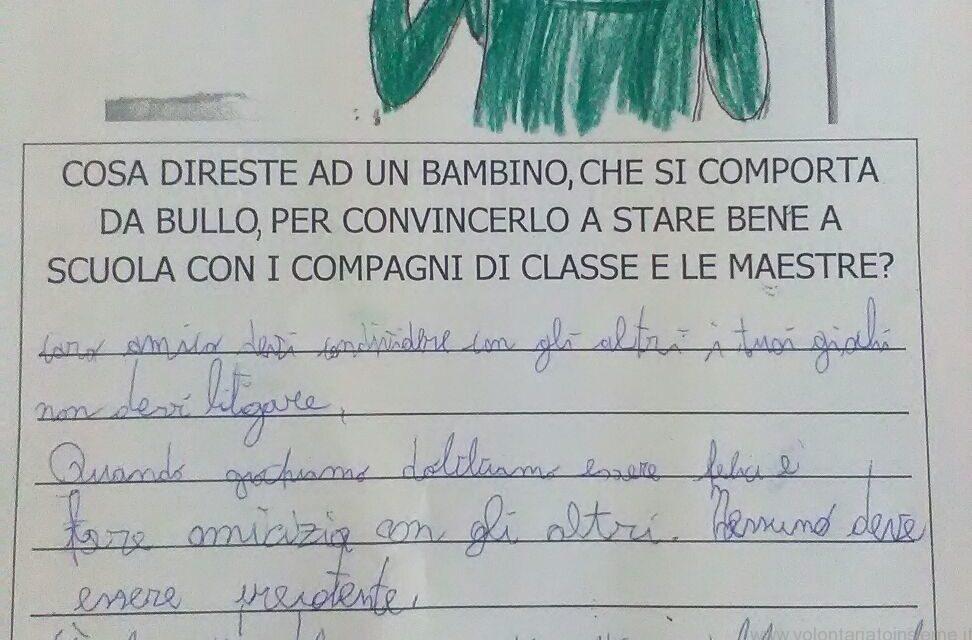 COSA DIRESTE AD UN BAMBINO, CHE SI COMPORTA
DA BULLO, PER CONVINCERLO A STARE BENE A
SCUOLA CON I COMPAGNI DI CLASSE E LE MAESTRE?
caro amico devi condividere con gli altri i tuoi giochi
non devi litigare,
Quando giochiamo dobbiamo essere felici e
fare amicizia con gli altri. Nessuno deve
essere prepotente,
www.volontariatoinsieme.it